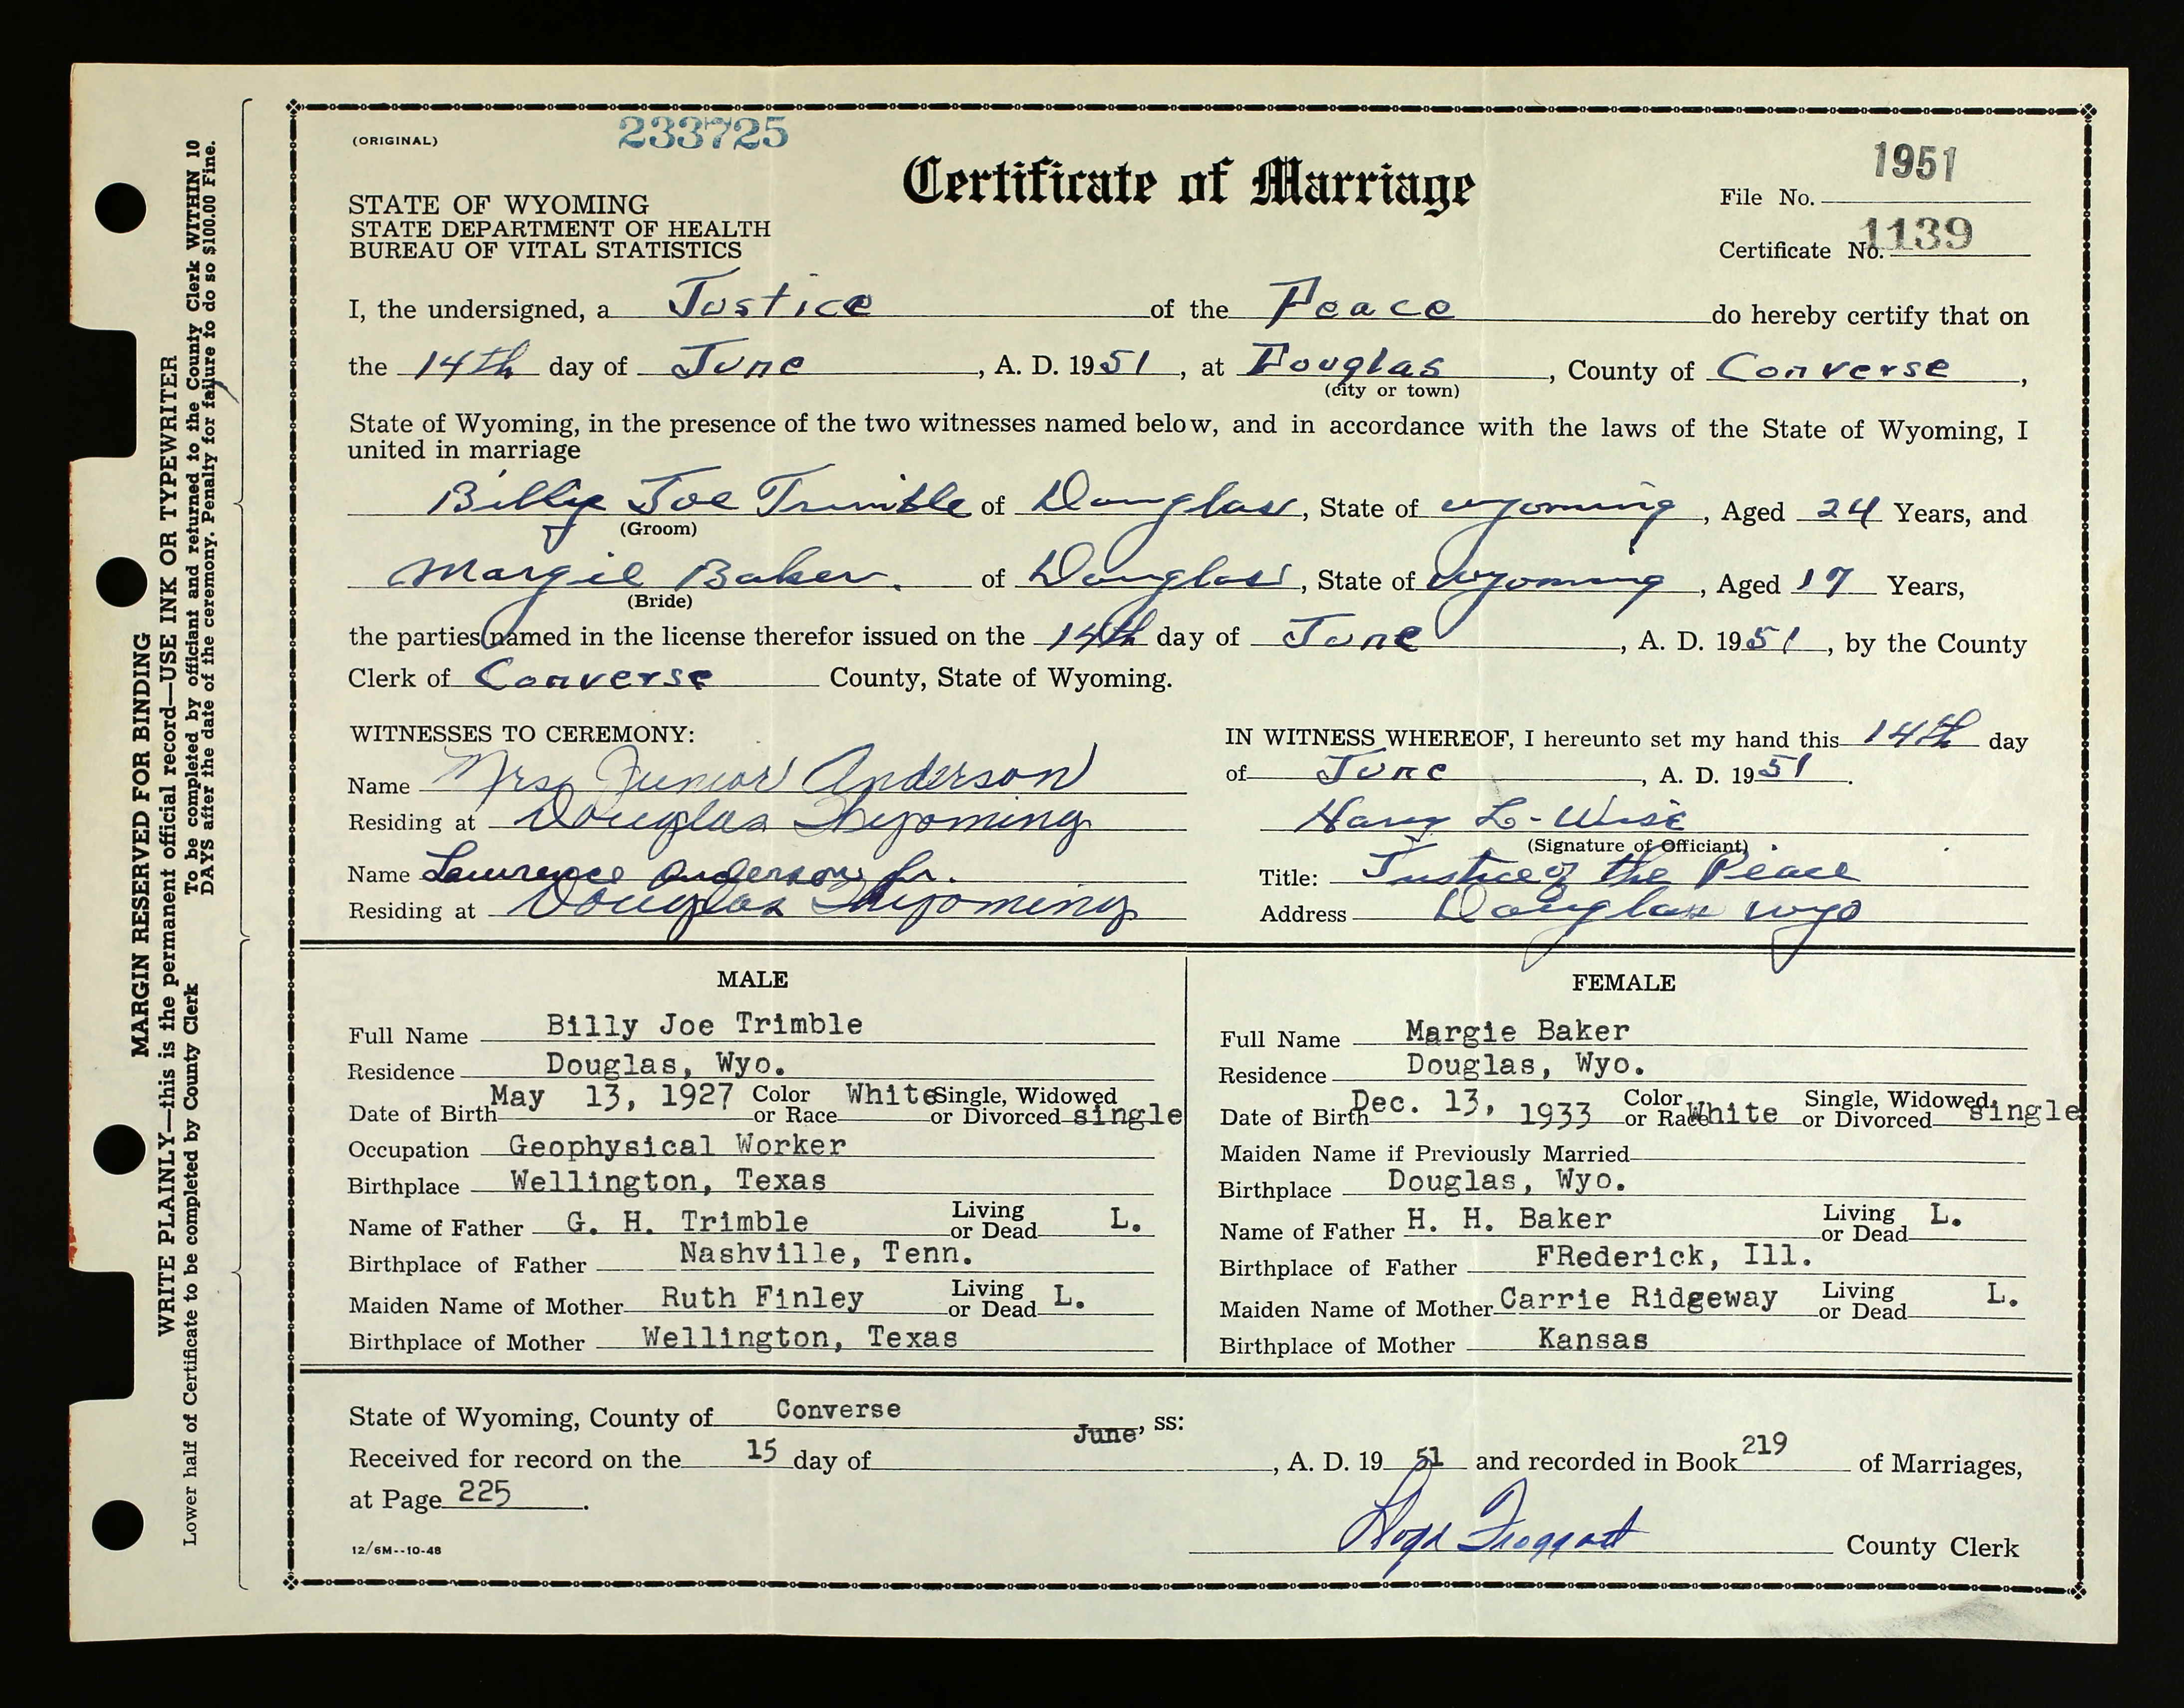 (ORIGINAL)
233725
Certificate of Marriage
1951
File No.
1139
Certificate No.
STATE OF WYOMING
STATE DEPARTMENT OF HEALTH
BUREAU OF VITAL STATISTICS
I, the undersigned, a Justice of the Peace do hereby certify that on
the 14th day of June, A. D. 1951, at Douglas, County of Converse,
(city or town)
State of Wyoming, in the presence of the two witnesses named below, and in accordance with the laws of the State of Wyoming, I
united in marriage
Billy Joe Trimble of Douglas, State of Wyoming, Aged 24 Years, and
(Groom)
Margie Baker. of Douglas, State of Wyoming, Aged 17 Years,
(Bride)
the parties named in the license therefor issued on the 14th day of June, A. D. 1951, by the County
Clerk of Converse County, State of Wyoming.
WITNESSES TO CEREMONY:
Name Mrs Junior Anderson
Residing at Douglas Wyoming
Name Lawrence Anderson Jr.
Residing at Douglas Wyoming
IN WITNESS WHEREOF, I hereunto set my hand this 14th day
of June, A. D. 1951.
Harry L. Wise
(Signature of Officiant)
Title: Justice of the Peace
Address Douglas Wyo
MALE
Full Name Billy Joe Trimble
Residence Douglas, Wyo.
Date of Birth May 13, 1927 Color or Race White Single, Widowed or Divorced single
Occupation Geophysical Worker
Birthplace Wellington, Texas
Name of Father G. H. Trimble Living or Dead L.
Birthplace of Father Nashville, Tenn.
Maiden Name of Mother Ruth Finley Living or Dead L.
Birthplace of Mother Wellington, Texas
FEMALE
Full Name Margie Baker
Residence Douglas, Wyo.
Date of Birth Dec. 13, 1933 Color or Race White Single, Widowed or Divorced single
Maiden Name if Previously Married
Birthplace Douglas, Wyo.
Name of Father H. H. Baker Living or Dead L.
Birthplace of Father FRederick, Ill.
Maiden Name of Mother Carrie Ridgeway Living or Dead L.
Birthplace of Mother Kansas
State of Wyoming, County of Converse, ss:
Received for record on the 15 day of June, A. D. 1951 and recorded in Book 219 of Marriages,
at Page 225.
Lloyd Froggatt County Clerk
12/6M--10-48
MARGIN RESERVED FOR BINDING
WRITE PLAINLY—this is the permanent official record—USE INK OR TYPEWRITER
Lower half of Certificate to be completed by County Clerk
To be completed by officiant and returned to the County Clerk WITHIN 10
DAYS after the date of the ceremony. Penalty for failure to do so $100.00 Fine.